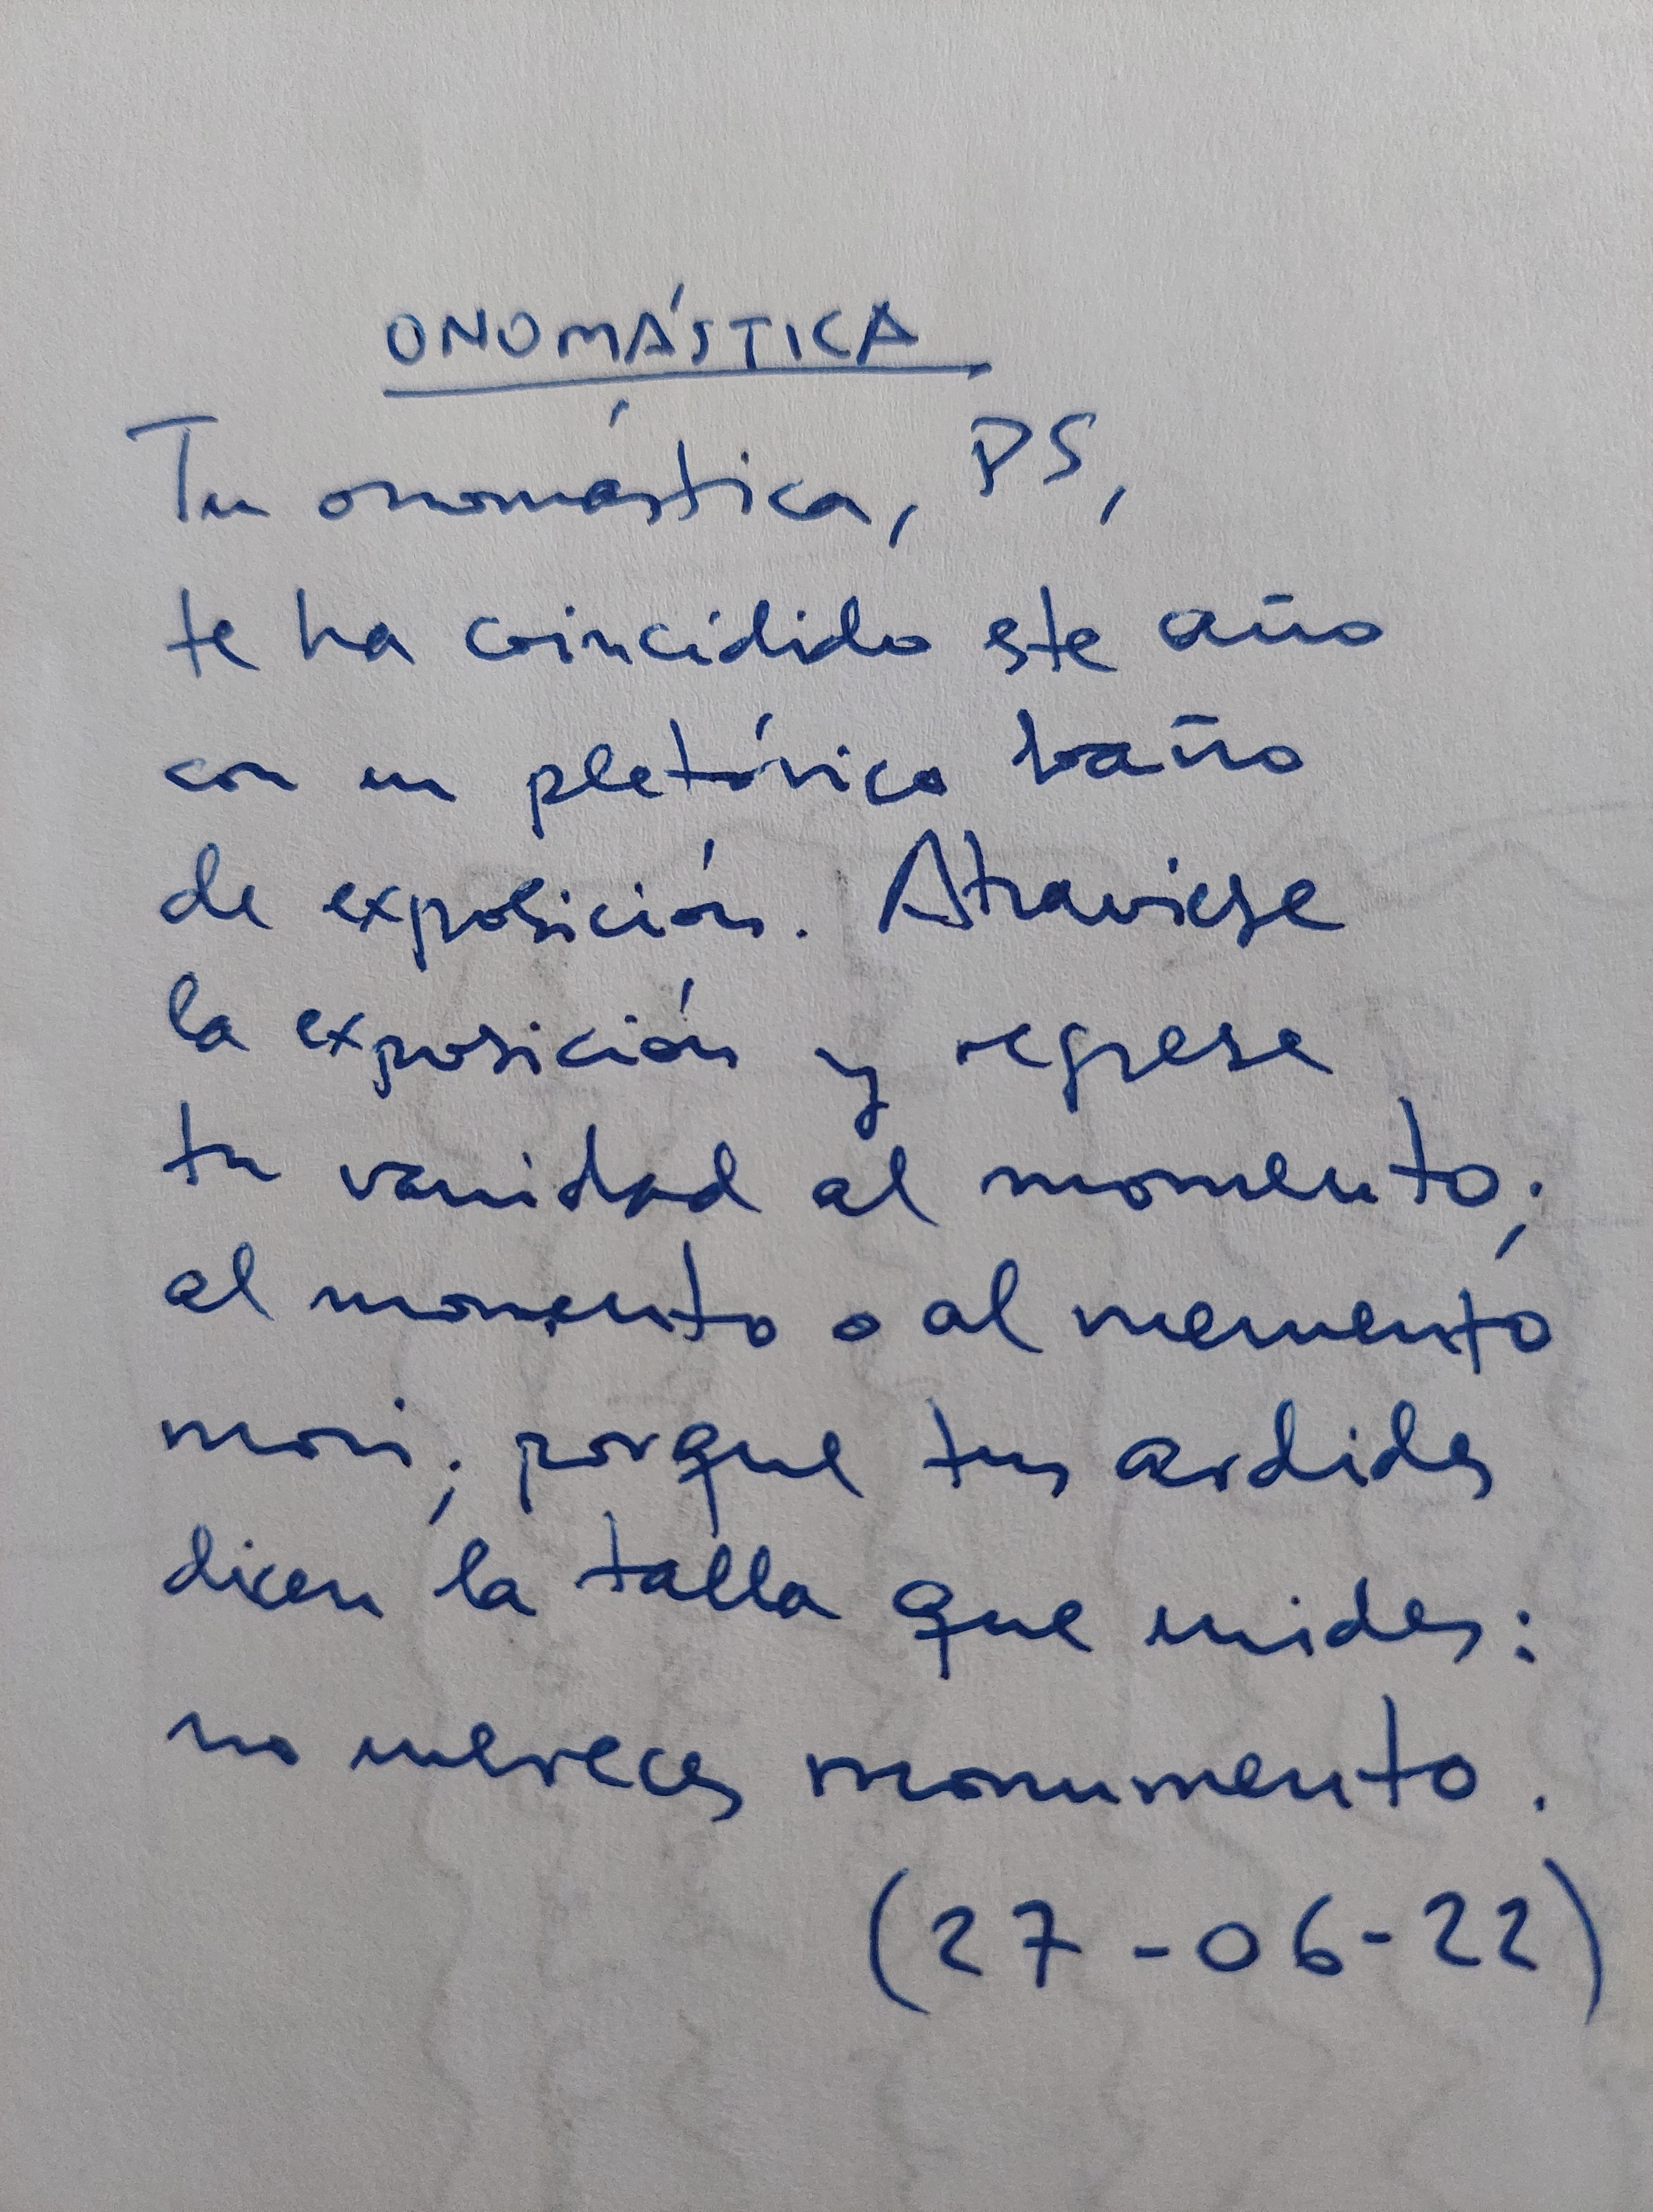 ONOMÁSTICA
Tu onomástica, PS,
te ha coincidido este año
con un pletórico baño
de exposición. Atraviese
la exposición y regrese
tu vanidad al momento;
al momento o al memento
mori; porque tus ardides
dicen la talla que mides:
no mereces monumento.
(27-06-22)